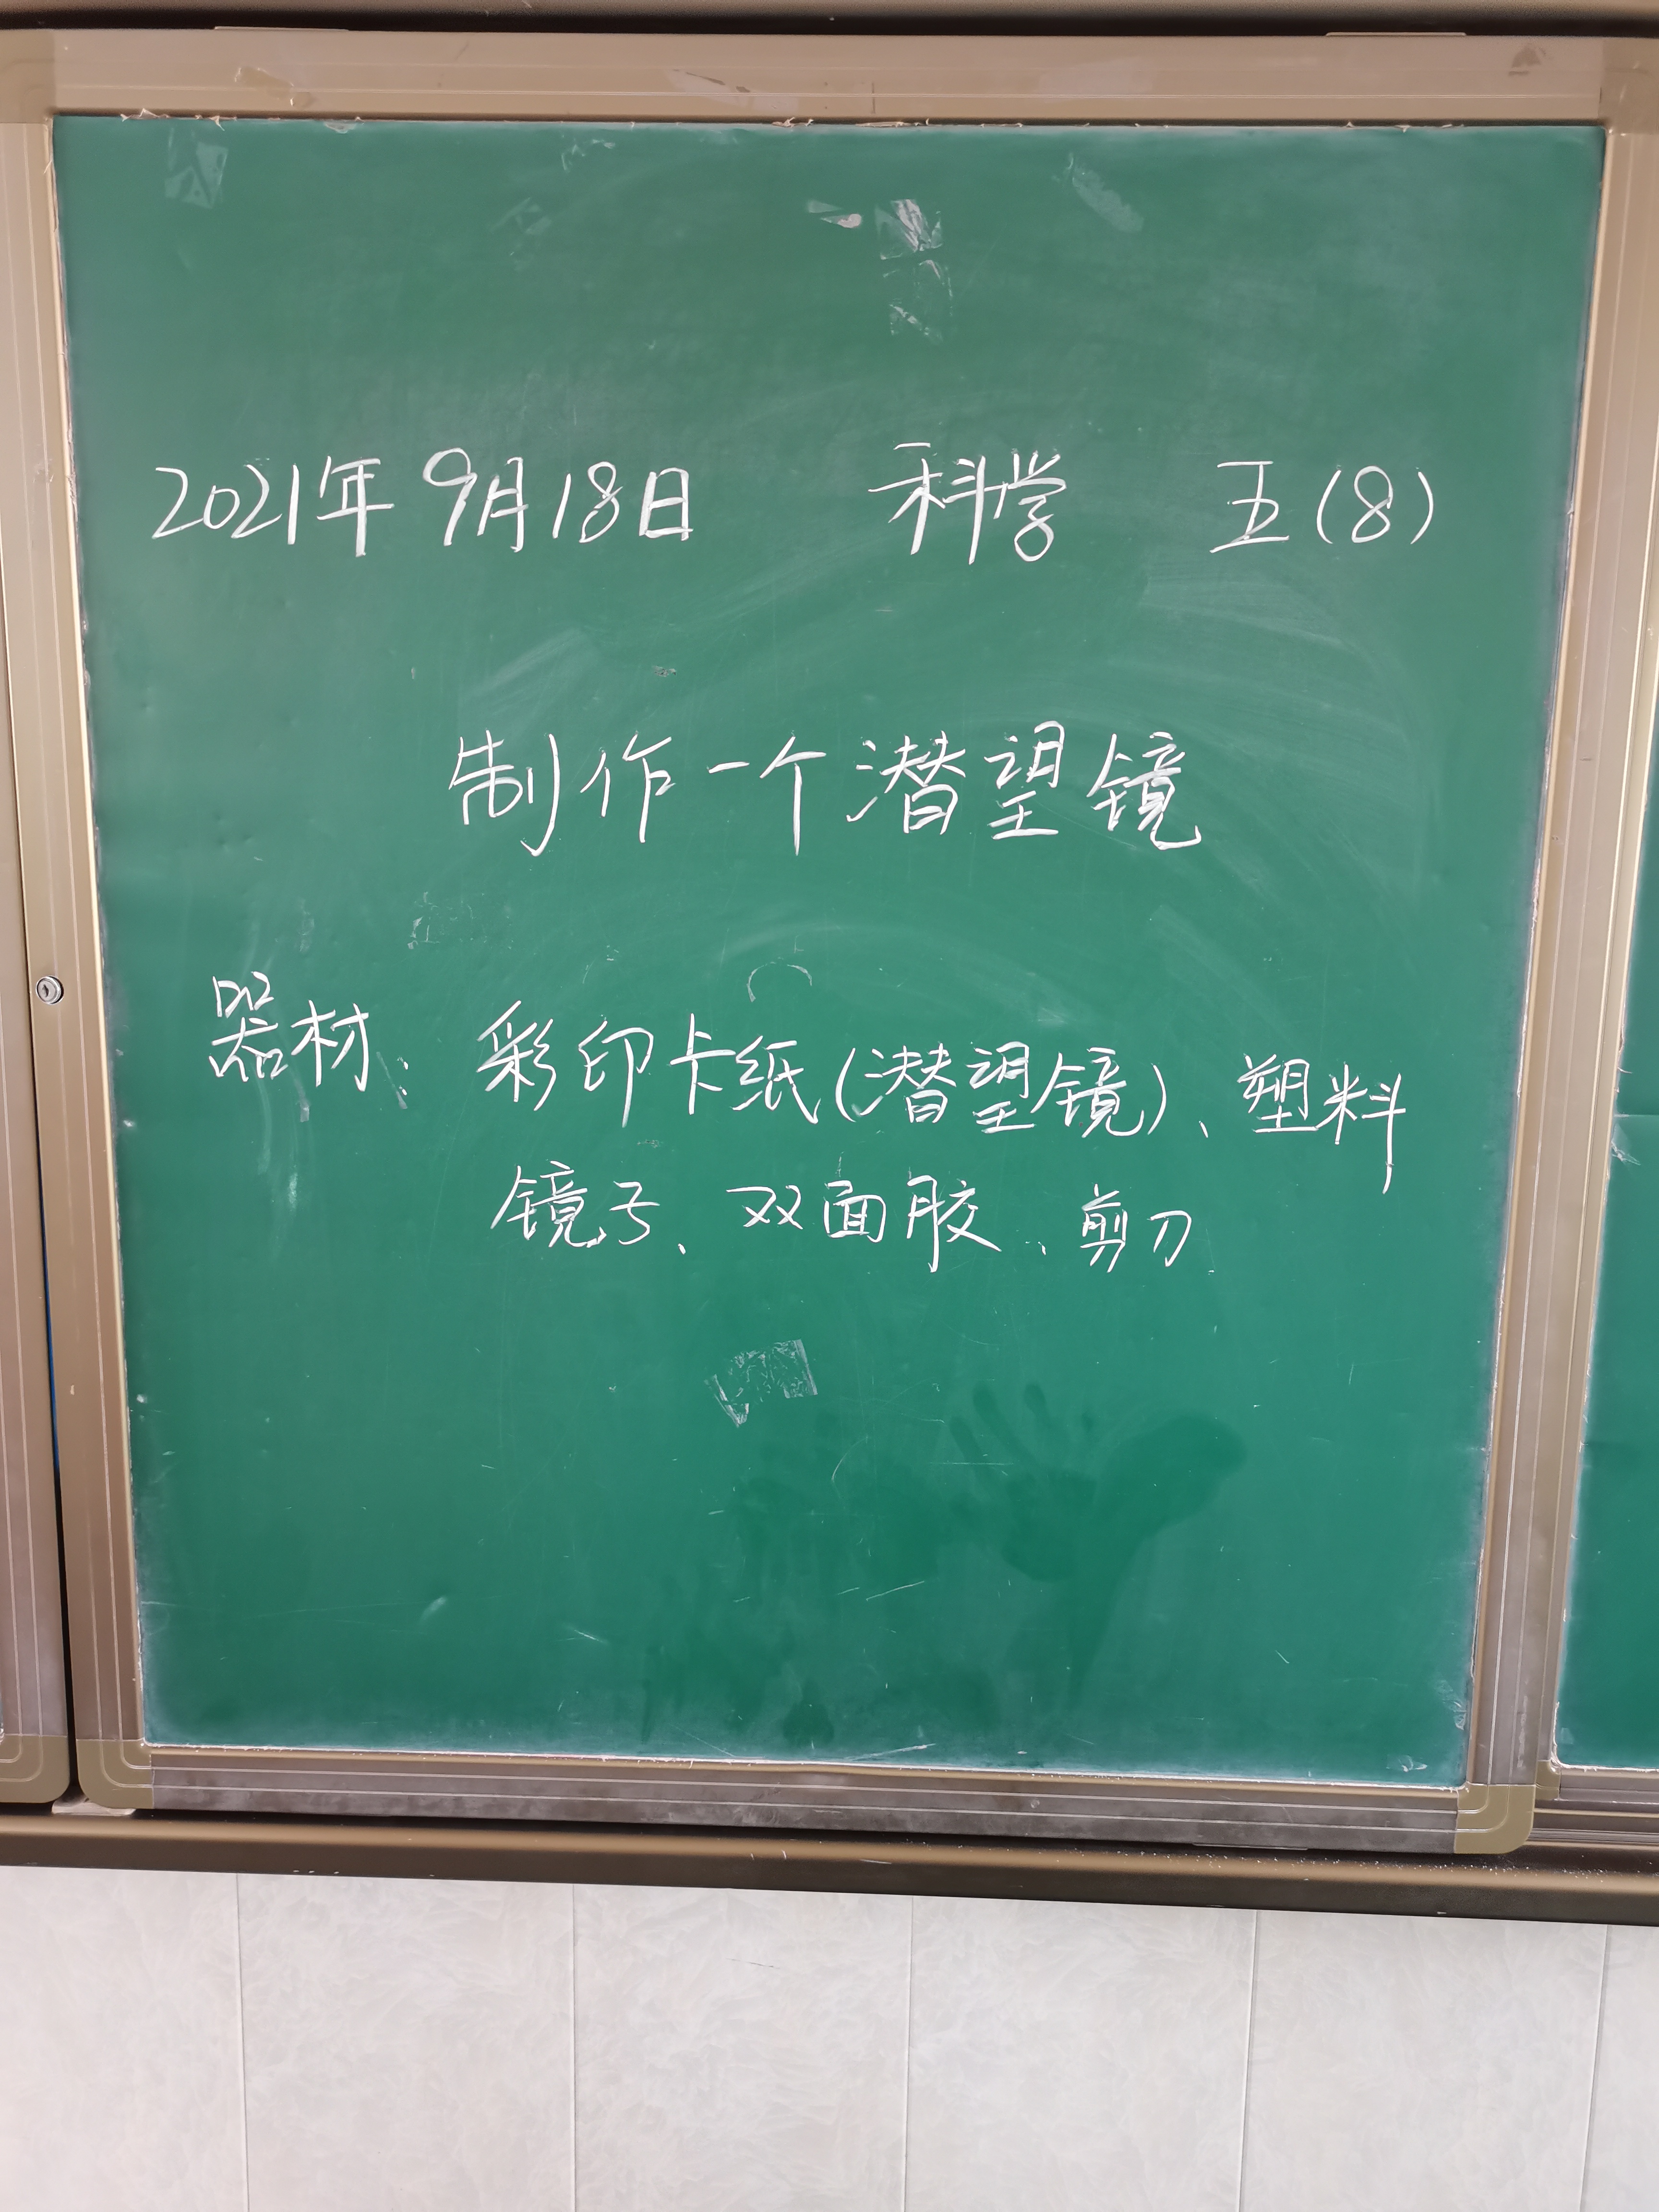 2021年9月18日 科学 五(8)
制作一个潜望镜
器材：彩印卡纸(潜望镜)、塑料
镜子、双面胶、剪刀